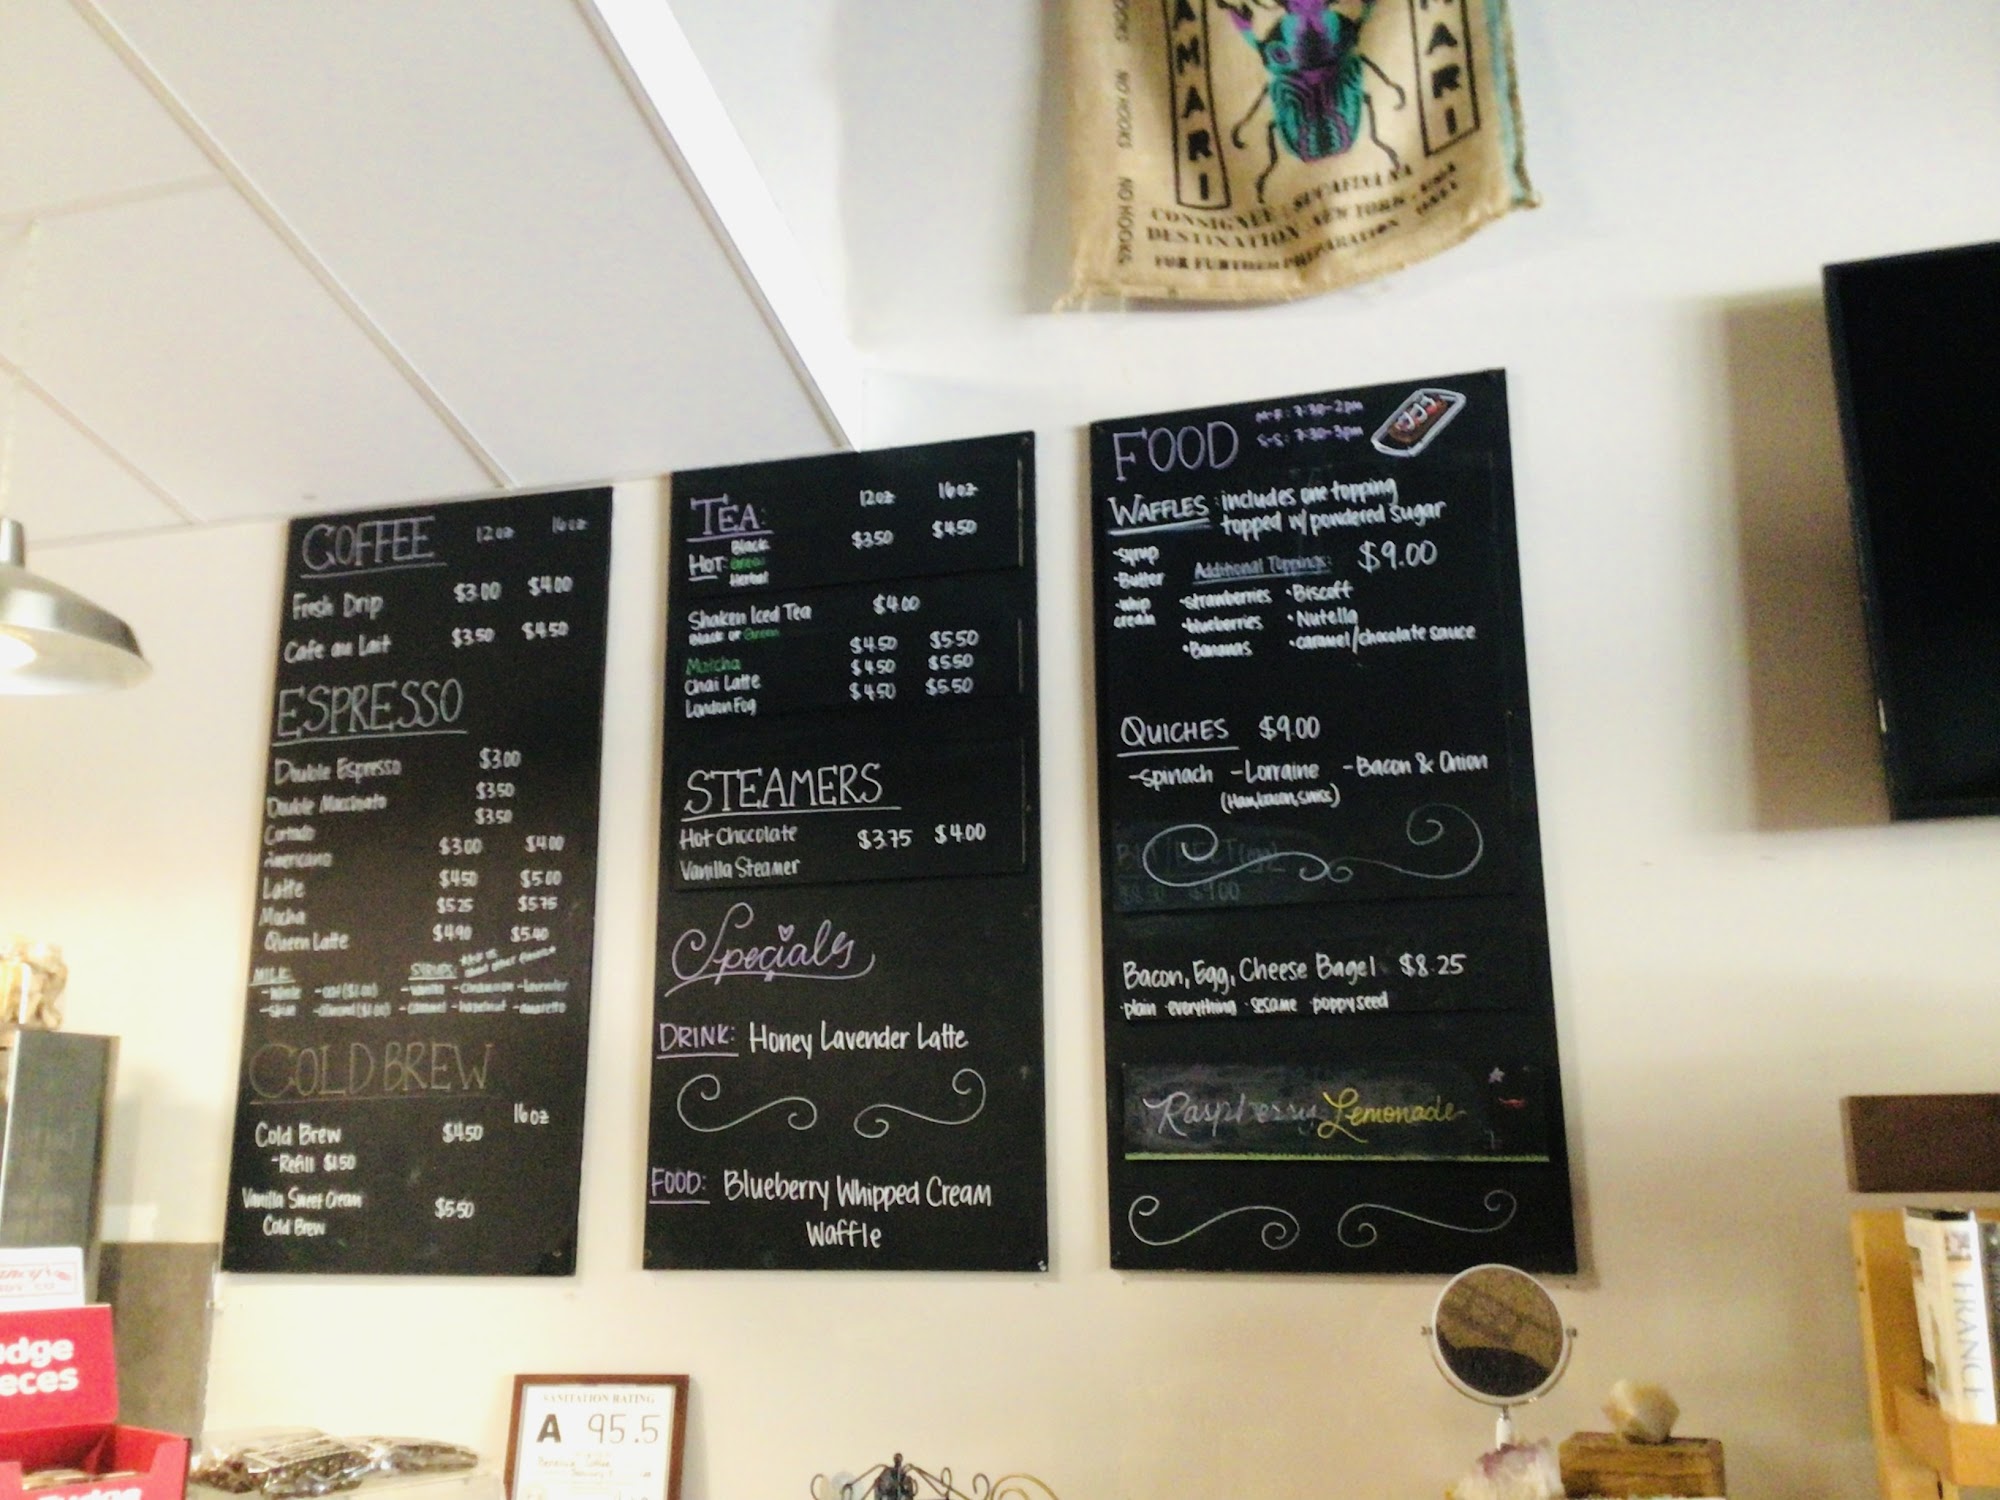 AMARI
MARI
NO HOOKS NO HOOKS
CONSIGNEE: SUCAFINA NA
DESTINATION: NEW YORK
FOR FURTHER PREPARATION ONLY
COFFEE 12oz 16oz
Fresh Drip $3.00 $4.00
Cafe au Lait $3.50 $4.50
ESPRESSO
Double Espresso $3.00
Double Macchiato $3.50
Cortado $3.50
Americano $3.00 $4.00
Latte $4.50 $5.00
Mocha $5.25 $5.75
Queen Latte $4.90 $5.40
MILK: SYRUPS:
-whole -oat ($1.00) -vanilla -cinnamon -lavender
-almond ($1.00) -caramel -hazelnut -amaretto
COLD BREW
16oz
Cold Brew $4.50
-Refill $1.50
Vanilla Sweet Cream $5.50
Cold Brew
TEA: 12oz 16oz
HOT: Black $3.50 $4.50
Green
Herbal
Shaken Iced Tea $4.00
Black or Green
Matcha $4.50 $5.50
Chai Latte $4.50 $5.50
London Fog $4.50 $5.50
STEAMERS
Hot Chocolate $3.75 $4.00
Vanilla Steamer
Specials
DRINK: Honey Lavender Latte
FOOD: Blueberry Whipped Cream
Waffle
FOOD M-F: 7:30-2pm
S-S: 7:30-3pm
WAFFLES: includes one topping
topped w/ powdered sugar
$9.00
·syrup
·Butter
·whip
cream
Additional Toppings:
·strawberries ·Biscoff
·blueberries ·Nutella
·Bananas ·caramel/chocolate sauce
QUICHES $9.00
-Spinach -Lorraine -Bacon & Onion
(Ham, bacon, swiss)
Bacon, Egg, Cheese Bagel $8.25
·plain ·everything ·sesame ·poppyseed
Raspberry Lemonade
SANITATION RATING
A 95.5
FRANCE